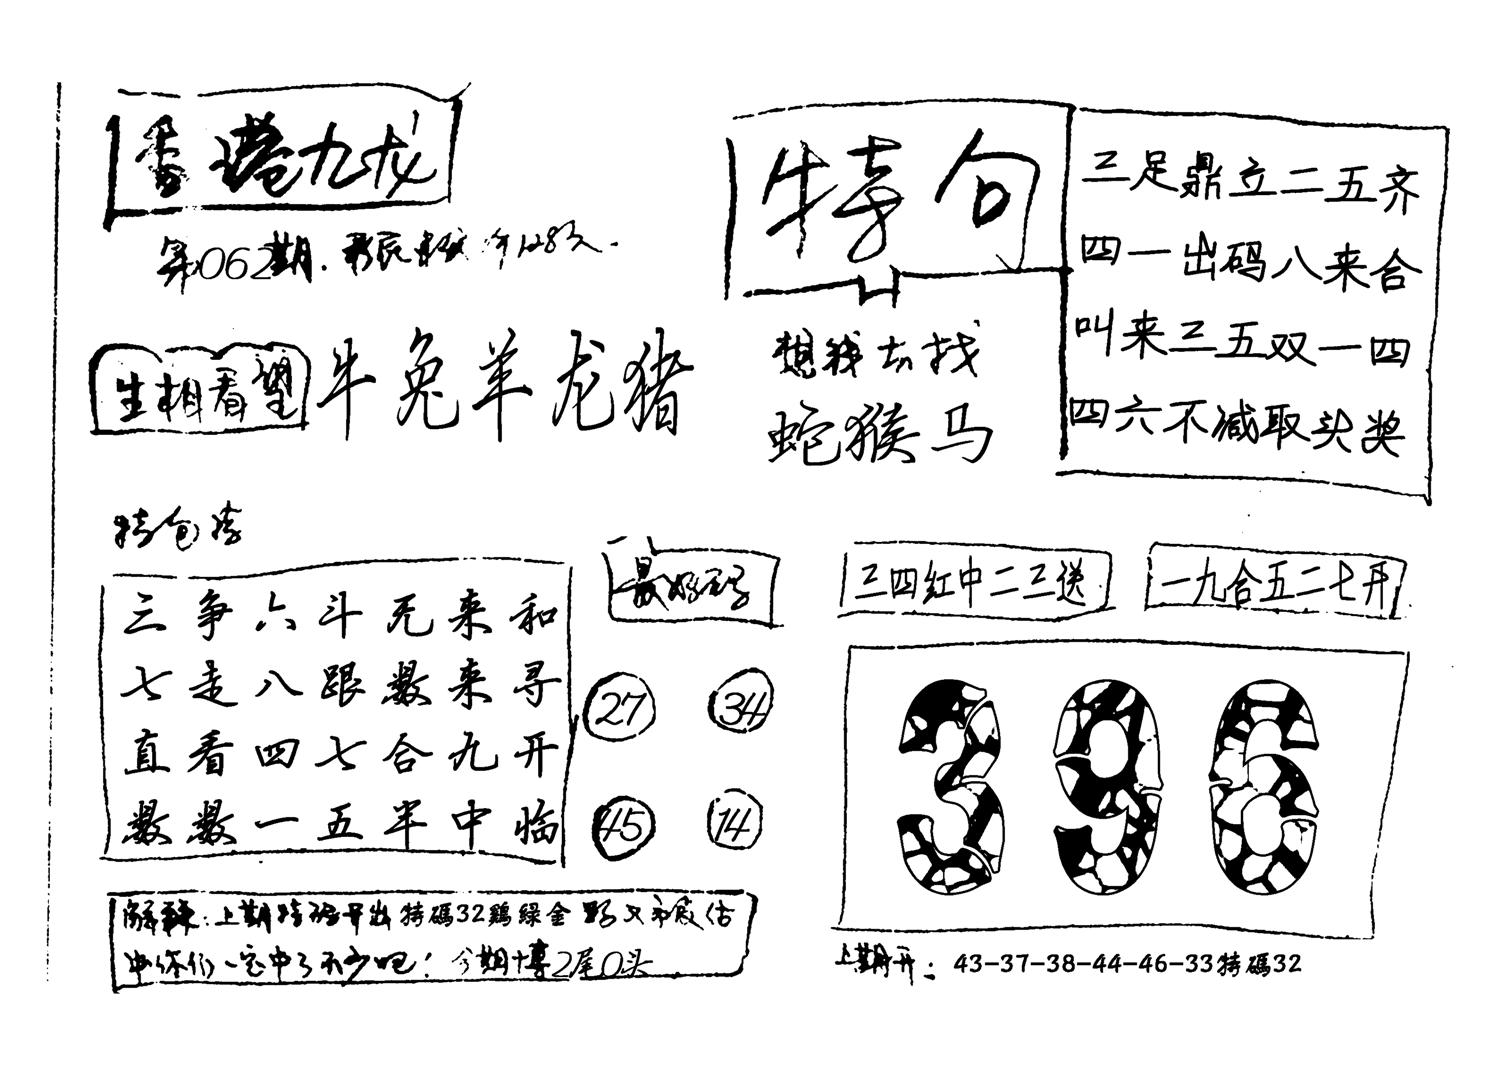 香港九龙
第062期.
生相看望
牛兔羊龙猪
特句
想我去找
蛇猴马
三足鼎立二五齐
四一出码八来合
叫来三五双一四
四六不减取头奖
三争六斗无来和
七走八跟数来寻
直看四七合九开
数数一五半中临
最好码
27 34
45 14
三四红中二三送
一九合五二七开
396
解:上期特码开出特碼32鷄綠金
你们一定中了不少吧!今期博2尾0头
上期开: 43-37-38-44-46-33特碼32